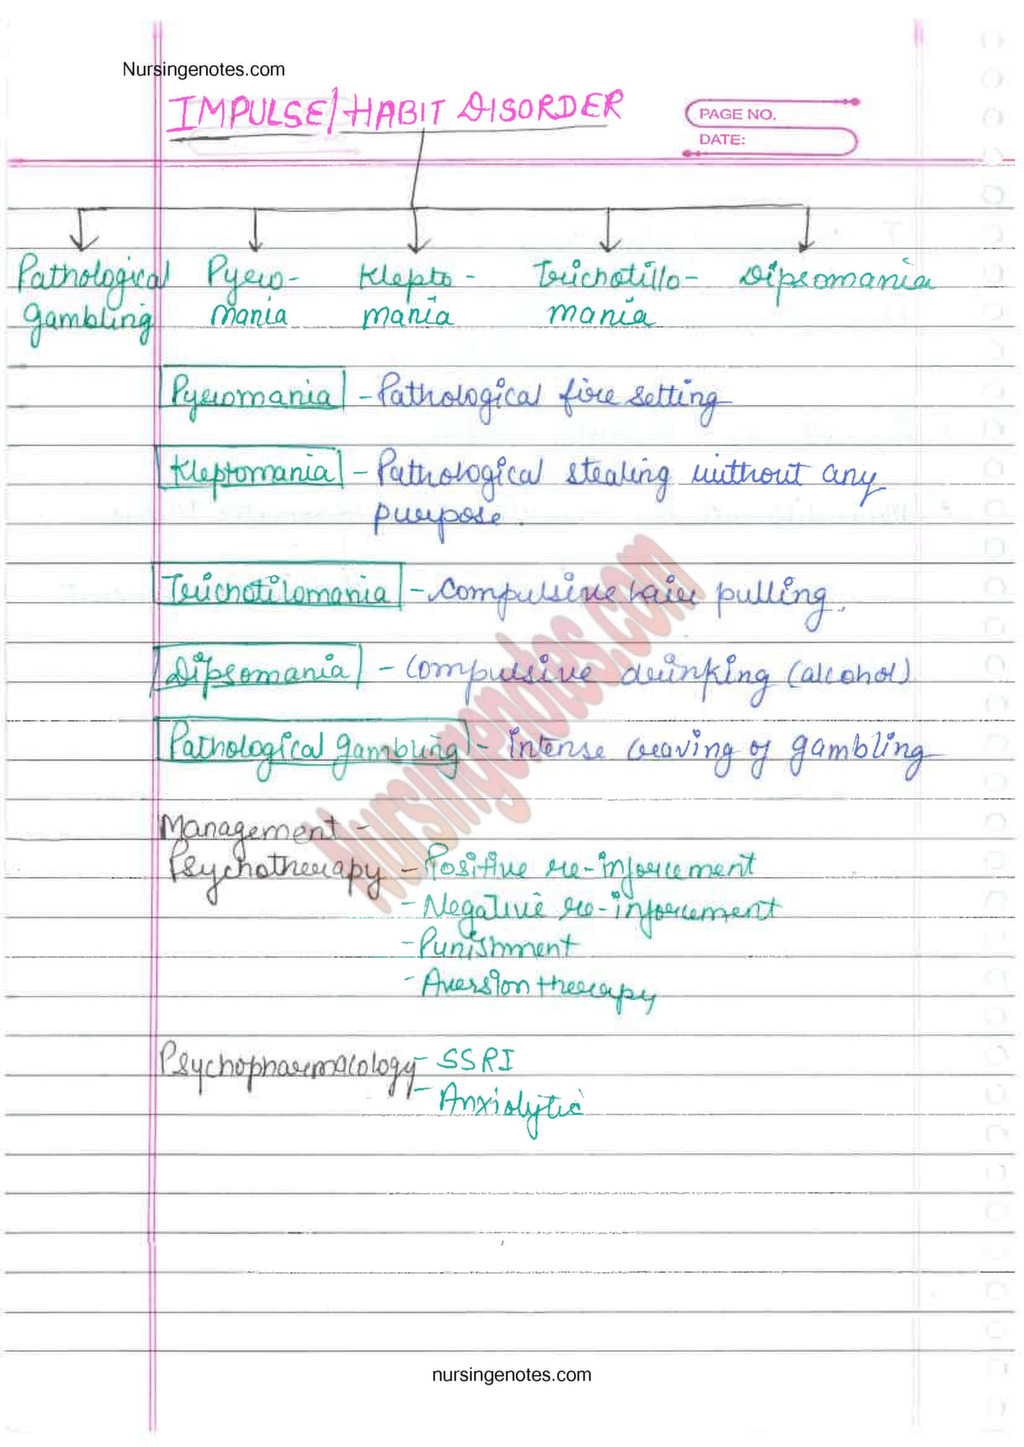 Nursingenotes.com
IMPULSE/HABIT DISORDER
PAGE NO.
DATE:
Pathological Pyro- Klepto- Trichotillo- Dipsomania
gambling mania mania mania
Pyromania - Pathological fire setting
Kleptomania - Pathological stealing without any
purpose.
Trichotilomania - Compulsive hair pulling.
Dipsomania - Compulsive drinking (alcohol)
Pathological gambling - intense craving of gambling
Nursingenotes.com
Management -
Psychotherapy - Positive re-inforcement
- Negative re-inforcement
- Punishment
- Aversion therapy
Psychopharmacology - SSRI
- Anxiolytic
nursingenotes.com